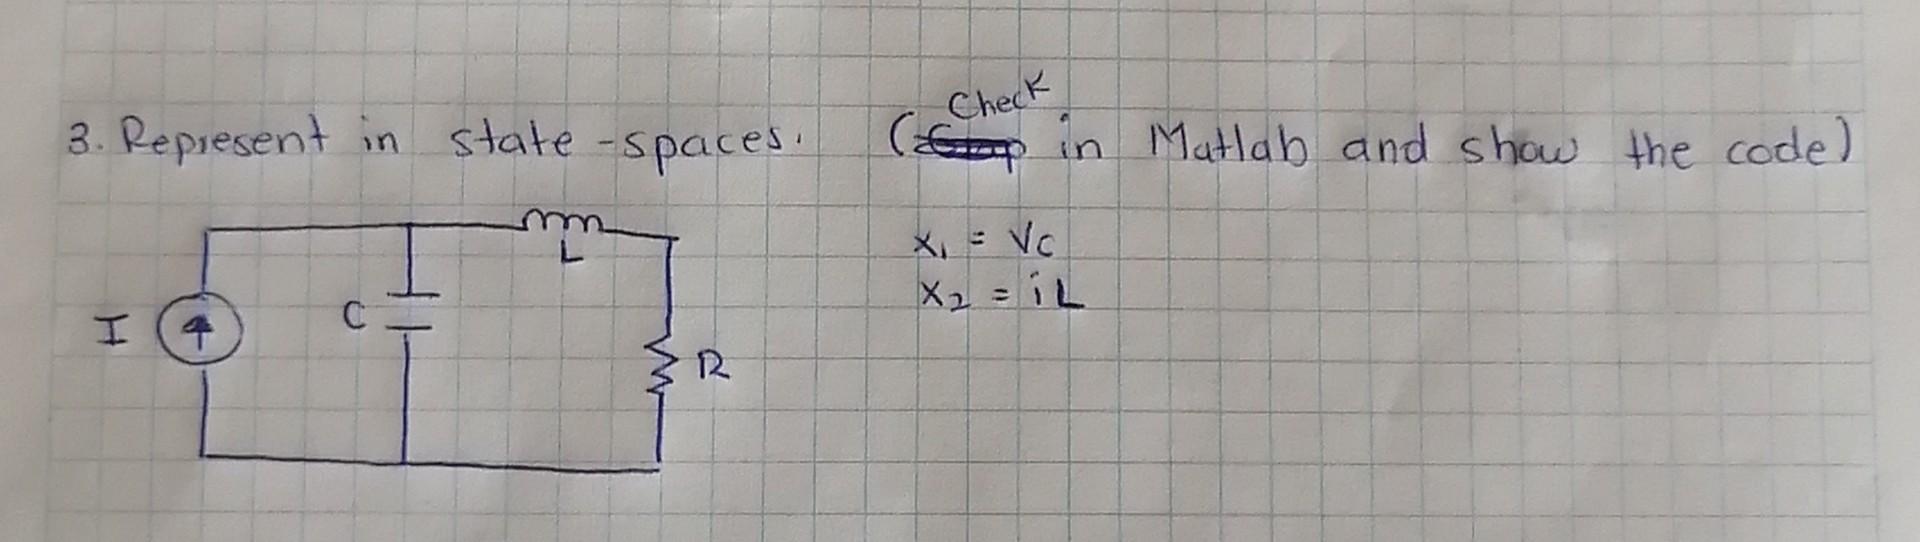 Check
3. Represent in state-spaces. ( in Matlab and show the code)
L
x₁ = Vc
x₂ = iL
I
C
R